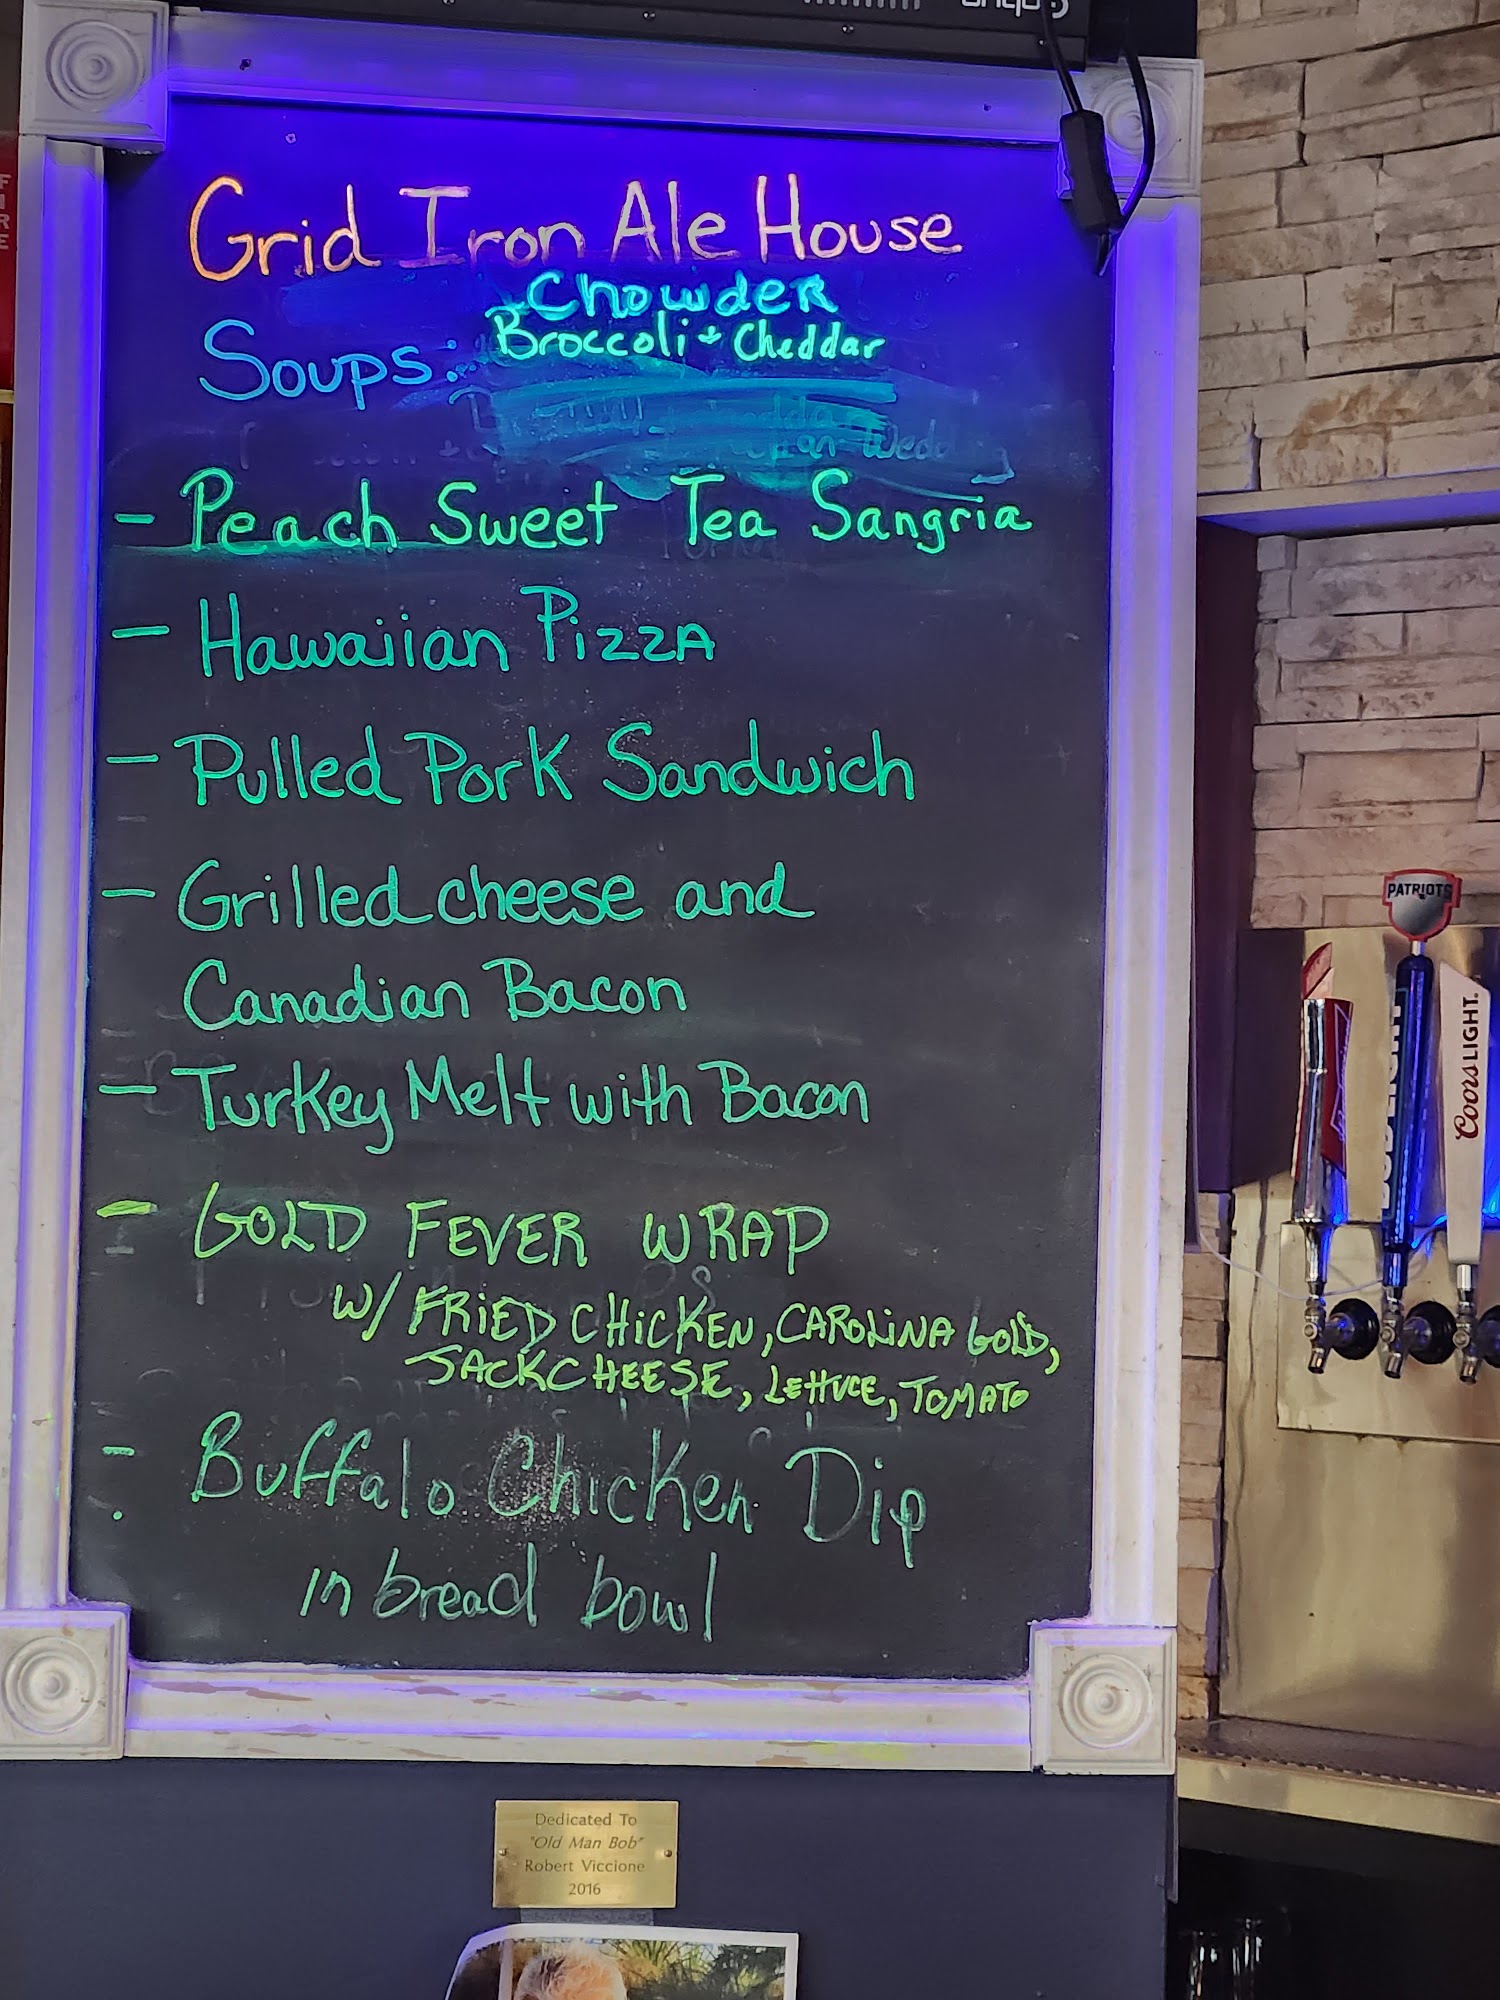 Grid Iron Ale House
Chowder
Soups: Broccoli + Cheddar
- Peach Sweet Tea Sangria
- Hawaiian Pizza
- Pulled Pork Sandwich
- Grilled cheese and
Canadian Bacon
- Turkey Melt with Bacon
- GOLD FEVER WRAP
W/ FRIED CHICKEN, CAROLINA GOLD,
JACK CHEESE, LETTUCE, TOMATO
- Buffalo Chicken Dip
in bread bowl
Dedicated To
"Old Man Bob"
Robert Viccione
2016
PATRIOTS
BUD LIGHT
Coors LIGHT.
FIRE